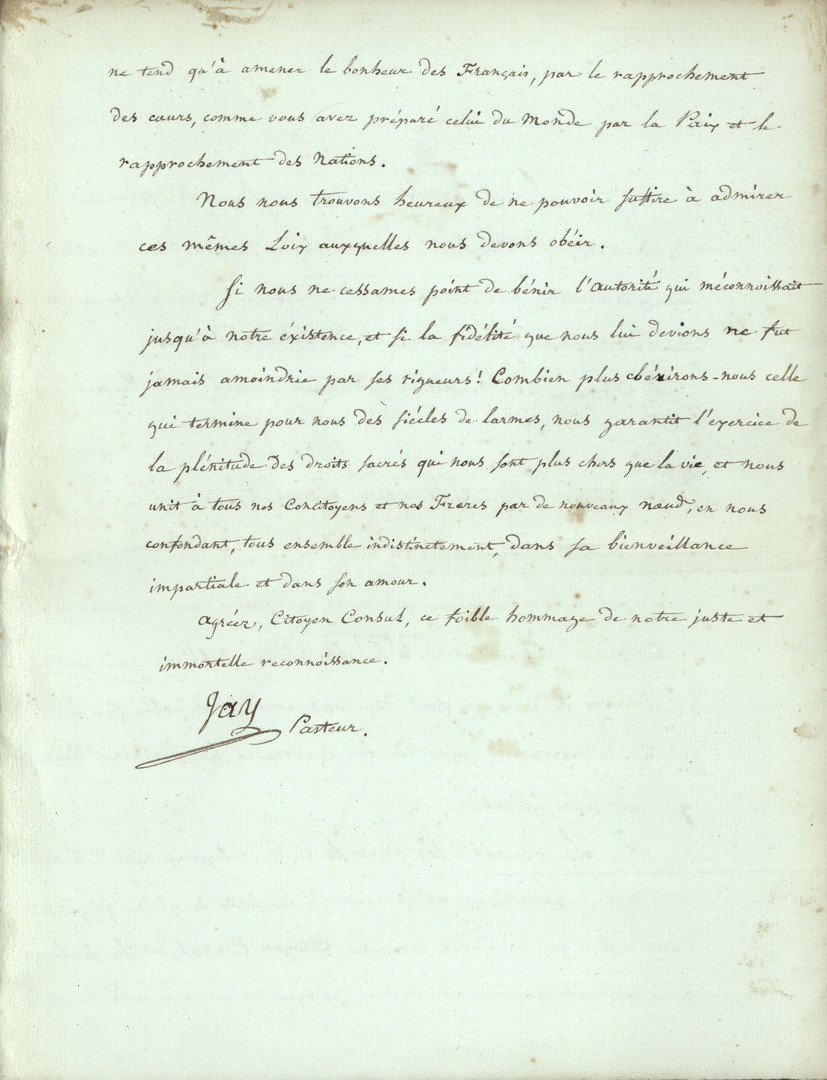 ne tend qu'à amener le bonheur des Français, par le rapprochement
des cœurs, comme vous avez préparé celui du Monde par la Paix et le
rapprochement des Nations.
Nous nous trouvons heureux de ne pouvoir suffire à admirer
ces mêmes Loix auxquelles nous devons obéir.
Si nous ne cessames point de bénir l'autorité qui méconnoissait
jusqu'à notre éxistence, et si la fidélité que nous lui devions ne fut
jamais amoindrie par ses rigueurs! Combien plus chérirons-nous celle
qui termine pour nous des siécles de larmes, nous garantit l'exercice de
la plénitude des droits sacrés qui nous sont plus chers que la vie, et nous
unit à tous nos Concitoyens et nos Freres par de nouveaux nœud, en nous
confondant, tous ensemble indistinctement, dans sa bienveillance
impartiale et dans son amour.
Agréez, Citoyen Consul, ce foible hommage de notre juste et
immortelle reconnoissance.
Jay
Pasteur.